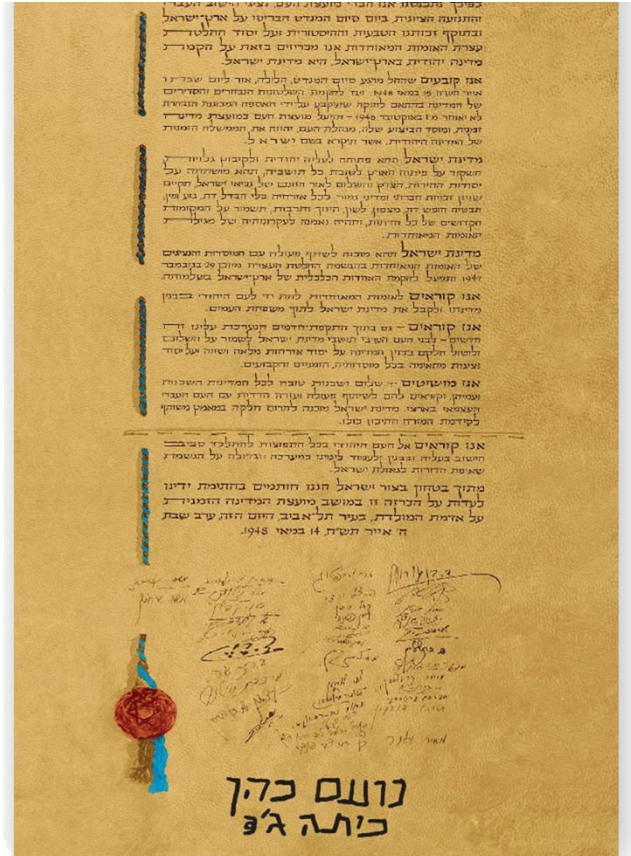 לפיכך נתכנסנו אנו חברי מועצת העם, נציגי הישוב העברי
והתנועה הציונית, ביום סיום המנדט הבריטי על ארץ־ישראל
ובתוקף זכותנו הטבעית וההיסטורית ועל יסוד החלטת
עצרת האומות המאוחדות אנו מכריזים בזאת על הקמת
מדינה יהודית בארץ־ישראל, היא מדינת ישראל.
אנו קובעים שהחל מרגע סיום המנדט, הלילה, אור ליום שבת ו
אייר תש"ח, 15 במאי 1948, ועד להקמת השלטונות הנבחרים והסדירים
של המדינה בהתאם לחוקה שתיקבע על־ידי האספה המכוננת הנבחרת
לא יאוחר מ־1 באוקטובר 1948 – תפעל מועצת העם כמועצת מדינה
זמנית, ומוסד הביצוע שלה, מנהלת העם, יהווה את הממשלה הזמנית
של המדינה היהודית, אשר תיקרא בשם ישראל.
מדינת ישראל תהא פתוחה לעליה יהודית ולקיבוץ גלויות
תשקוד על פיתוח הארץ לטובת כל תושביה, תהא מושתתה על
יסודות החירות, הצדק והשלום לאור חזונם של נביאי ישראל, תקיים
שויון זכויות חברתי ומדיני גמור לכל אזרחיה בלי הבדל דת, גזע ומין,
תבטיח חופש דת, מצפון, לשון, חינוך ותרבות, תשמור על המקומות
הקדושים של כל הדתות, ותהיה נאמנה לעקרונותיה של מגילת
האומות המאוחדות.
מדינת ישראל תהא מוכנה לשתף פעולה עם המוסדות והנציגים
של האומות המאוחדות בהגשמת החלטת העצרת מיום 29 בנובמבר
1947 ותפעל להקמת האחדות הכלכלית של ארץ־ישראל בשלמותה.
אנו קוראים לאומות המאוחדות לתת יד לעם היהודי בבנין
מדינתו ולקבל את מדינת ישראל לתוך משפחת העמים.
אנו קוראים – גם בתוך התקפת־הדמים הנערכת עלינו זה
חדשים – לבני העם הערבי תושבי מדינת ישראל לשמור על השלום
וליטול חלקם בבנין המדינה על יסוד אזרחות מלאה ושווה ועל יסוד
נציגות מתאימה בכל מוסדותיה, הזמניים והקבועים.
אנו מושיטים יד שלום ושכנות טובה לכל המדינות השכנות
ועמיהן, וקוראים להם לשיתוף פעולה ועזרה הדדית עם העם העברי
העצמאי בארצו. מדינת ישראל מוכנה לתרום חלקה במאמץ משותף
לקידמת המזרח התיכון כולו.
אנו קוראים אל העם היהודי בכל התפוצות להתלכד סביב
הישוב בעליה ובבנין ולעמוד לימינו במערכה הגדולה על הגשמת
שאיפת הדורות לגאולת ישראל.
מתוך בטחון בצור ישראל הננו חותמים בחתימת ידינו
לעדות על הכרזה זו במושב מועצת המדינה הזמנית
על אדמת המולדת, בעיר תל־אביב, היום הזה, ערב שבת
ה' אייר תש"ח, 14 במאי 1948.
נועם כהן
כיתה ג'3